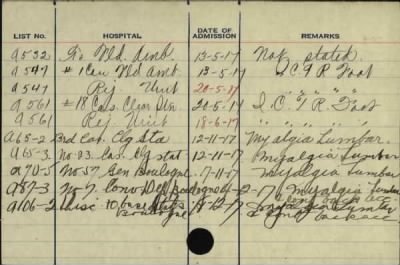 LIST No. HOSPITAL DATE OF ADMISSION REMARKS
a532 Fld. Amb. 13-5-17 Not stated.
a547 #1 Can Fld Amb. 13-5-17 I.C.T. R Foot
a547 Rej. Unit 20-5-17 " " " "
a561 #18 Cas. Clear Stn 20-5-17 I.C.T. R Foot
a561 Rej. Unit 18-6-17 " " " "
a65-2 3rd Can. Clg Sta 12-11-17 Myalgia Lumbar.
a65-3 No. 23 Cas. Clg Stat 12-11-17 Myalgia Lumbar
a70-5 No 57 Gen Boulogne 17-11-17 Myalgia Lumbar
a87-3 No 7. Conv Dep Boulogne 4-2-17 Myalgia
a106-2 Disc to Base Boulogne Myalgia Lumbar